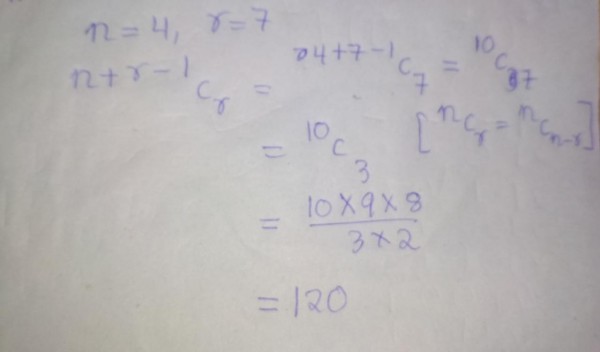 n = 4, r = 7
n+r-1 C r = 4+7-1 C 7 = 10 C 7
= 10 C 3 [n C r = n C n-r]
= 10×9×8 / 3×2
= 120